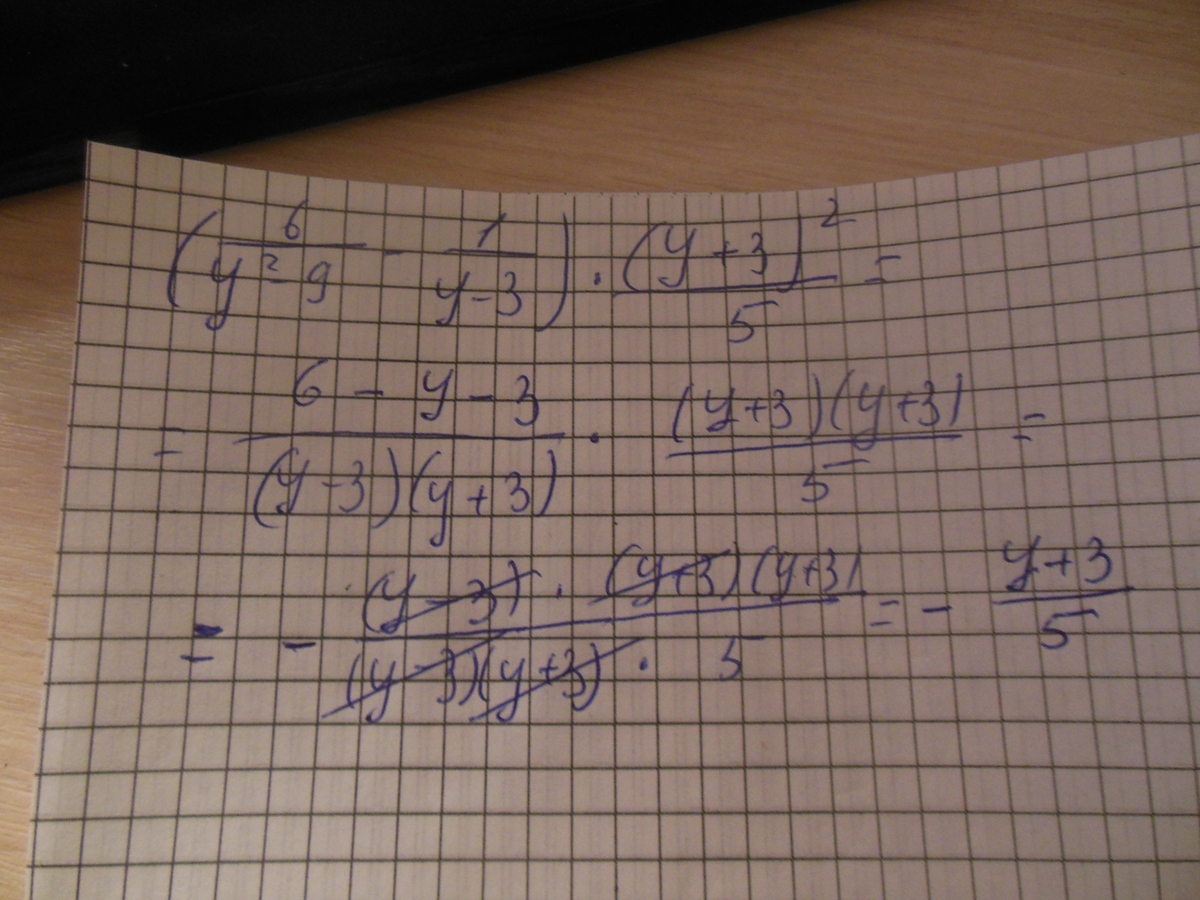 (6/(y²-9) - 1/(y-3)) · (y+3)²/5 =
= (6-y-3)/((y-3)(y+3)) · ((y+3)(y+3))/5 =
= - ((y-3)·(y+3)(y+3))/((y-3)(y+3)·5) = - (y+3)/5